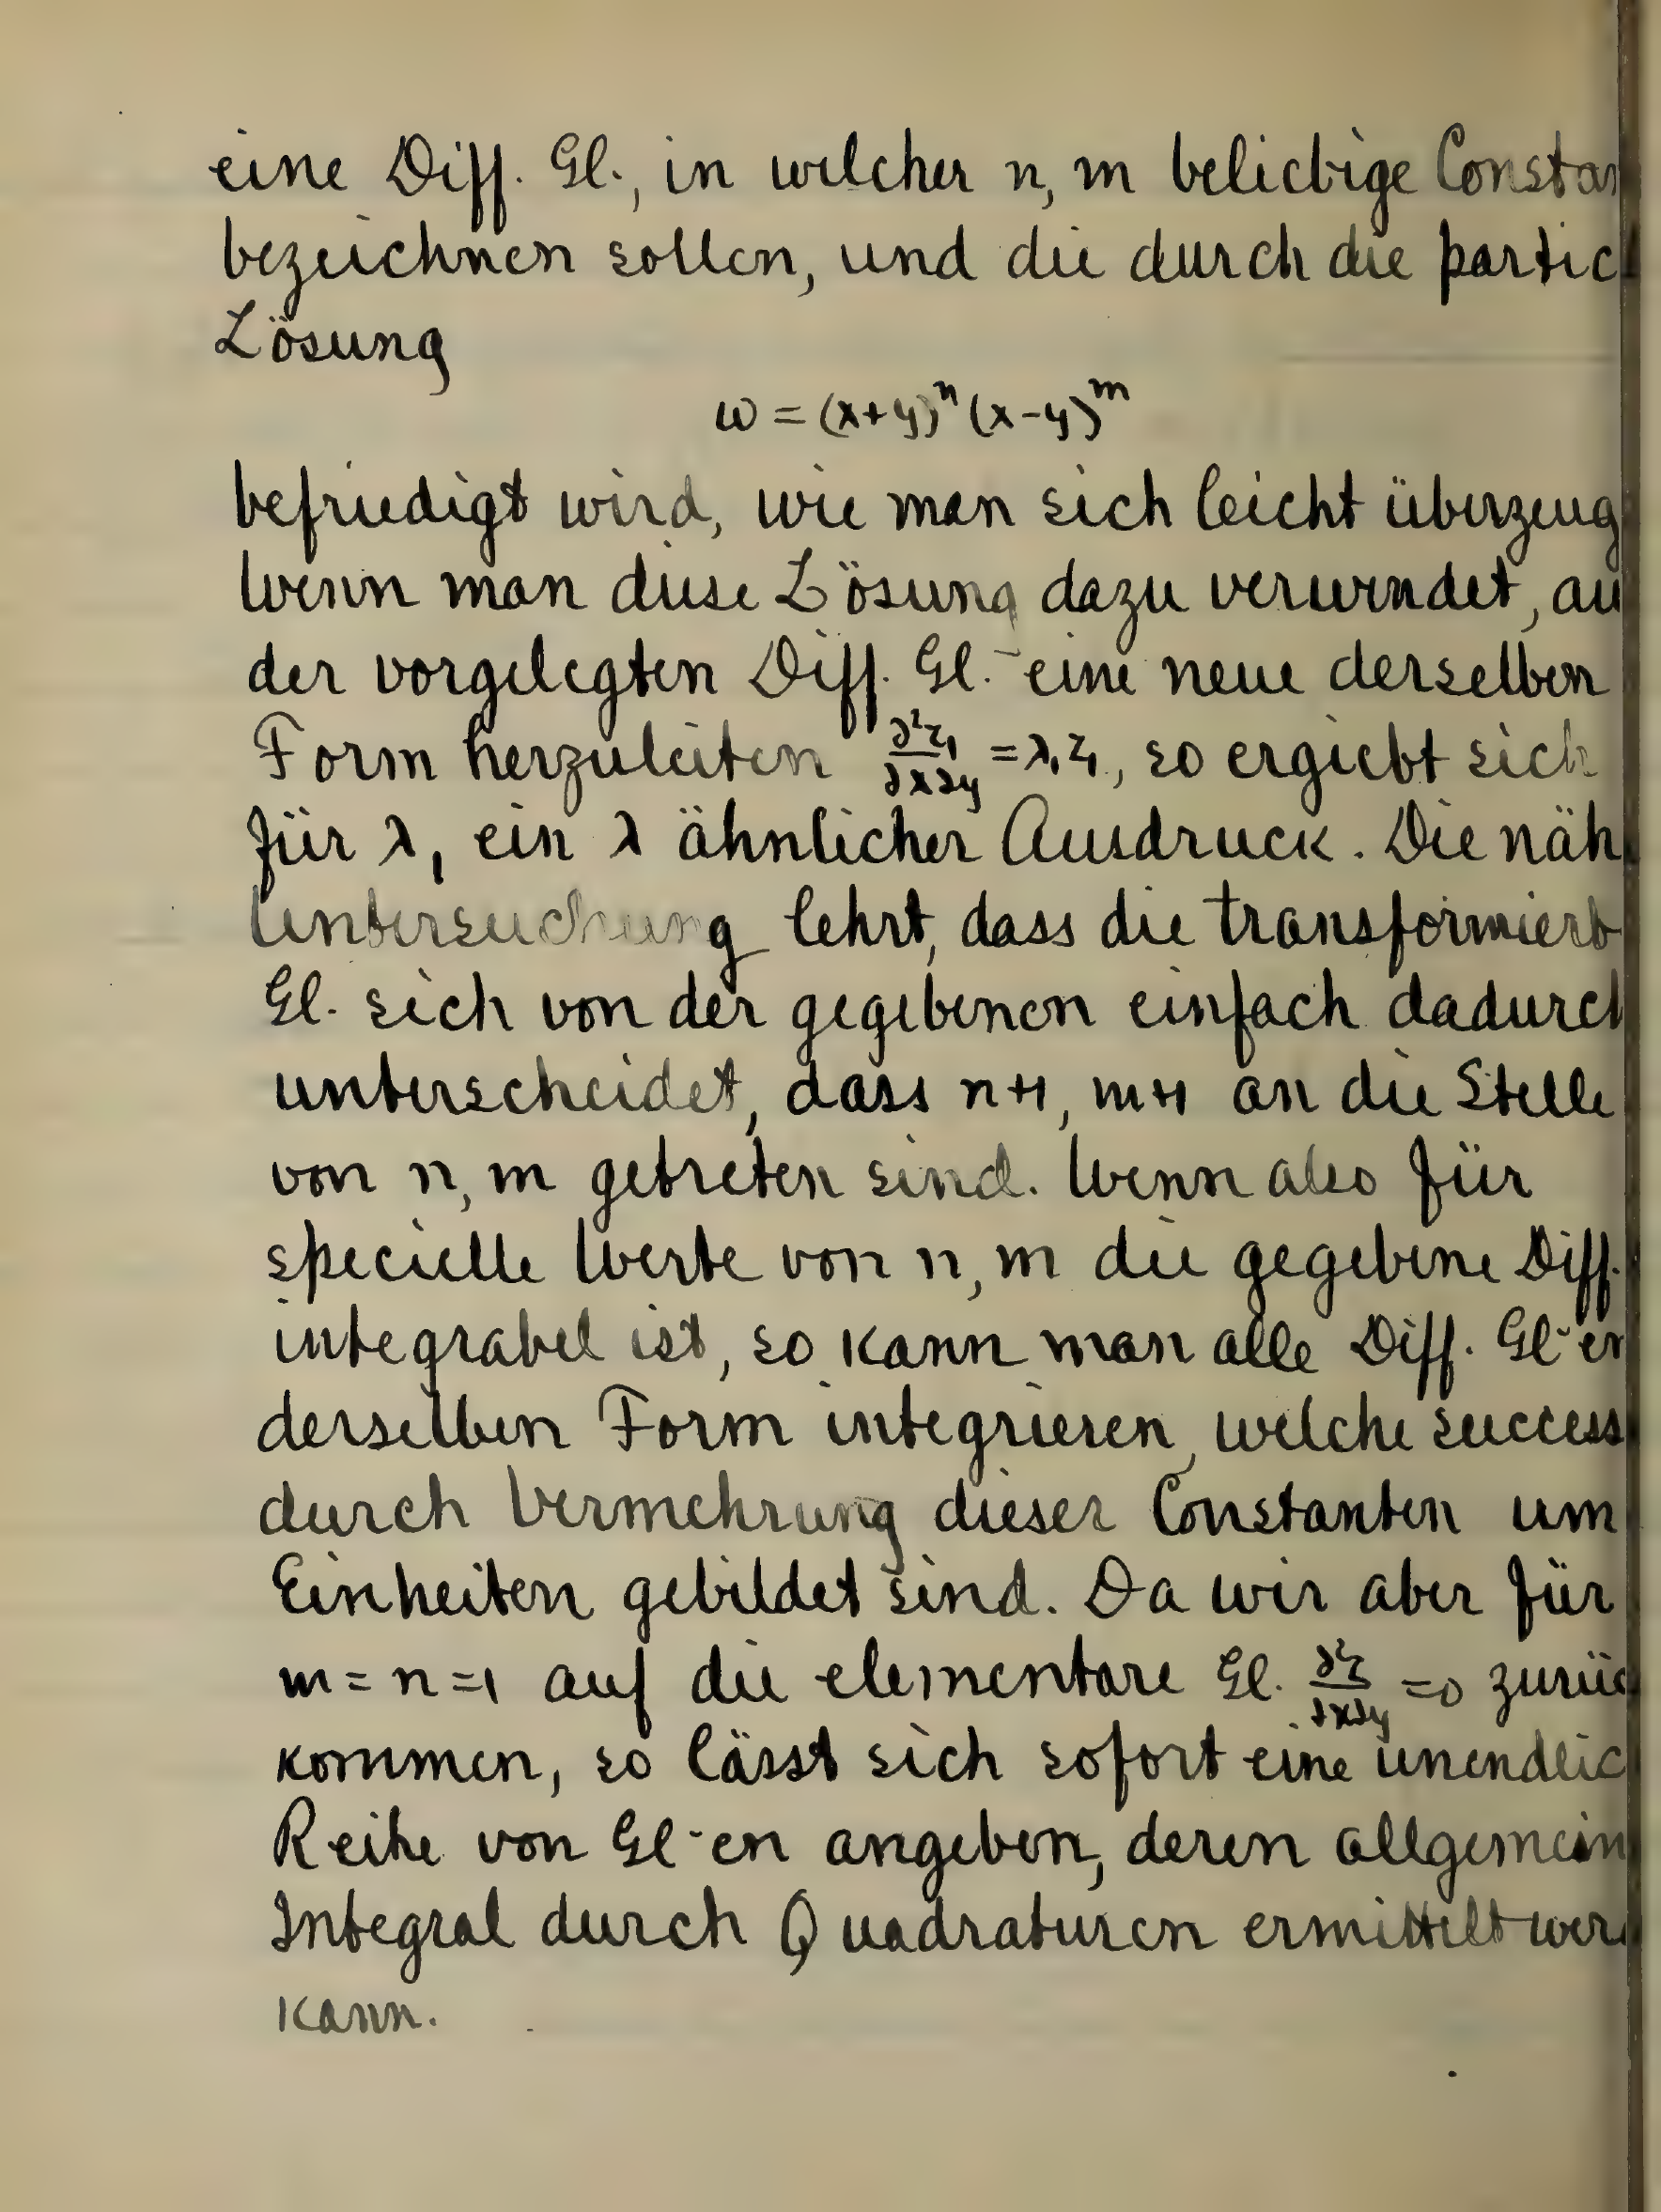 eine Diff. Gl., in welcher n, m beliebige Constan
bezeichnen sollen, und die durch die partic
Lösung
ω = (x+y)^n (x-y)^m
befriedigt wird, wie man sich leicht überzeug
Wenn man diese Lösung dazu verwendet, au
der vorgelegten Diff. Gl. eine neue derselben
Form herzuleiten ∂²z₁/∂x∂y = λ₁z₁, so ergiebt sich
für λ₁ ein λ ähnlicher Ausdruck. Die näh
Untersuchung lehrt, dass die transformiert
Gl. sich von der gegebenen einfach dadurch
unterscheidet, dass n+1, m+1 an die Stelle
von n, m getreten sind. Wenn also für
specielle Werte von n, m die gegebene Diff.
integrabel ist, so kann man alle Diff. Gl-en
derselben Form integrieren, welche success
durch Vermehrung dieser Constanten um
Einheiten gebildet sind. Da wir aber für
m = n = 1 auf die elementare Gl. ∂²z/∂x∂y = 0 zurüc
kommen, so lässt sich sofort eine unendlic
Reihe von Gl-en angeben, deren allgemein
Integral durch Quadraturen ermittelt wer
kann.